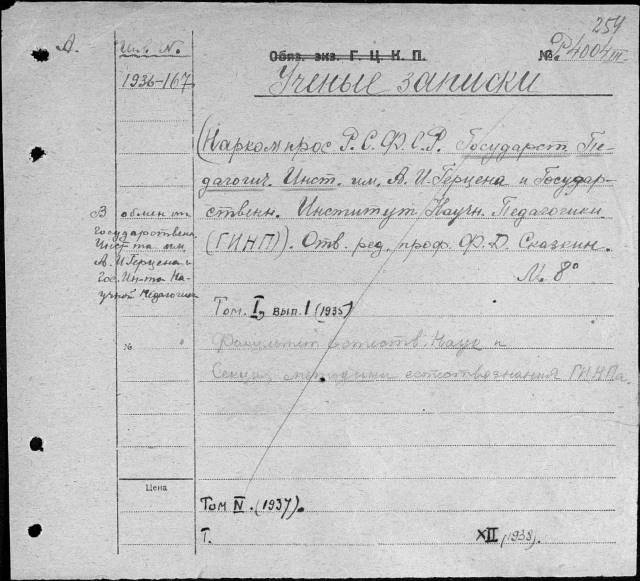 254
А.
Инв. No
Обяз. экз. Г. Ц. К. П.
№ Р4004/III
1936-167
Ученые записки
(Наркомпрос Р.С.Ф.С.Р. Государст Пе-
дагогич. Инст. им. А.И Герцена и Государ-
ственн. Институт Научн. Педагогики
(ГИНП)). Отв. ред. проф. Ф.Д. Сказкин.
Л. 8°
В обмен от
Государственн.
Инст та им.
А. И Герцена и
Гос. Ин-та На-
учной Педагогики
Том. I, вып. 1 (1935)
№
Факультет естеств. Наук и
Секция методики естествознания ГИНПа.
Цена
Том IV. (1937).
Т. XII (1938).